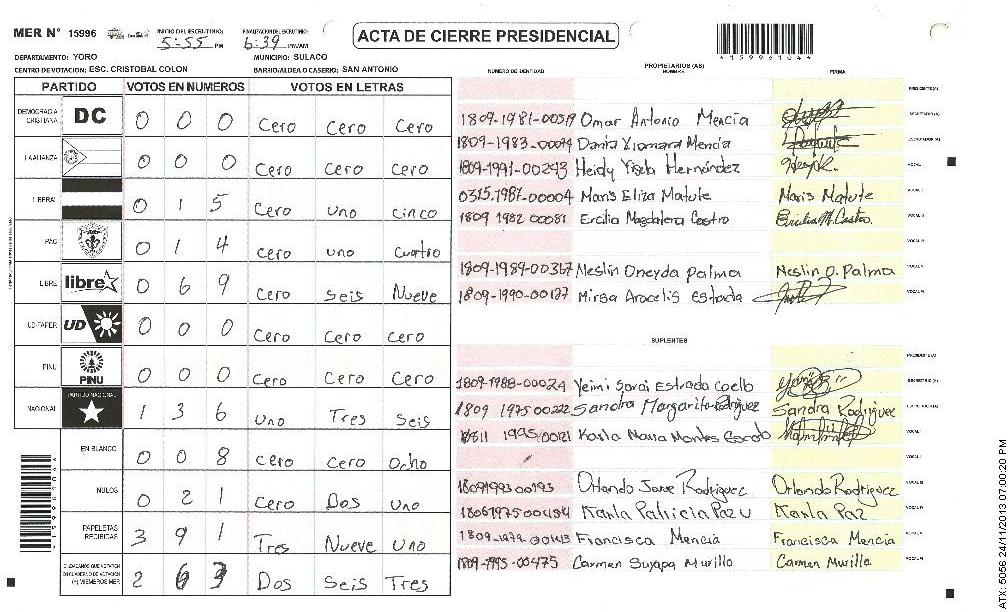 MER Nº 15996 INICIO DEL ESCRUTINIO: 5:55 PM FINALIZACION DEL ESCRUTINIO: 6:39 PM/AM
ACTA DE CIERRE PRESIDENCIAL
*1599610 4*
DEPARTAMENTO: YORO MUNICIPIO: SULACO
CENTRO DE VOTACION: ESC. CRISTOBAL COLON BARRIO/ALDEA O CASERIO: SAN ANTONIO
PARTIDO VOTOS EN NUMEROS VOTOS EN LETRAS
DEMOCRACIA CRISTIANA DC 0 0 0 Cero Cero Cero
LA ALIANZA 0 0 0 Cero Cero Cero
LIBERAL 0 1 5 Cero uno cinco
PAC 0 1 4 cero uno Cuatro
LIBRE libre 0 6 9 Cero Seis Nueve
UD-FAPER UD 0 0 0 Cero Cero cero
PINU PINU 0 0 0 Cero Cero Cero
NACIONAL PARTIDO NACIONAL 1 3 6 Uno Tres Seis
EN BLANCO 0 0 8 cero Cero Ocho
NULOS 0 2 1 Cero Dos uno
PAPELETAS RECIBIDAS 3 9 1 Tres Nueve Uno
CIUDADANOS QUE VOTARON EN CUADERNO DE VOTACION (+) MIEMBROS MER 2 6 3 Dos Seis Tres
NUMERO DE IDENTIDAD PROPIETARIOS (AS) NOMBRE FIRMA
PRESIDENTE (A)
1809-1981-00519 Omar Antonio Mencia SECRETARIO (A)
1809-1983-00094 Dania Xiomara Mencia ESCRUTADOR (A)
1809-1991-00293 Heidy Yisela Hernández VOCAL I
0315-1987-00004 Maris Eliza Matute Maris Matute
1809 1982 00081 Ercilia Magdalena Castro Ercilia M. Castro.
1809-1989-00367 Neslin Oneyda palma Neslin O. Palma
1809-1990-00127 Mirsa Aracelis Estrada
SUPLENTES
PRESIDENTE (A)
1809-1988-00024 Yeimi Sarai Estrada Coello SECRETARIO (A)
1809 1975 00222 Sandra Margarita Rodriguez Sandra Rodriguez ESCRUTADOR (A)
1811 1995 00121 Karla Maria Montes
1809 1993 00193 Orlando Jose Rodriguez Orlando Rodriguez
1806 1975 00484 Karla Patricia Paz Karla Paz
1809-1979-00143 Francisca Mencia Francisca Mencia
1809-1995-00475 Carmen Suyapa Murillo Carmen Murillo
ATX: 5056 24/11/2013 07:00:20 PM